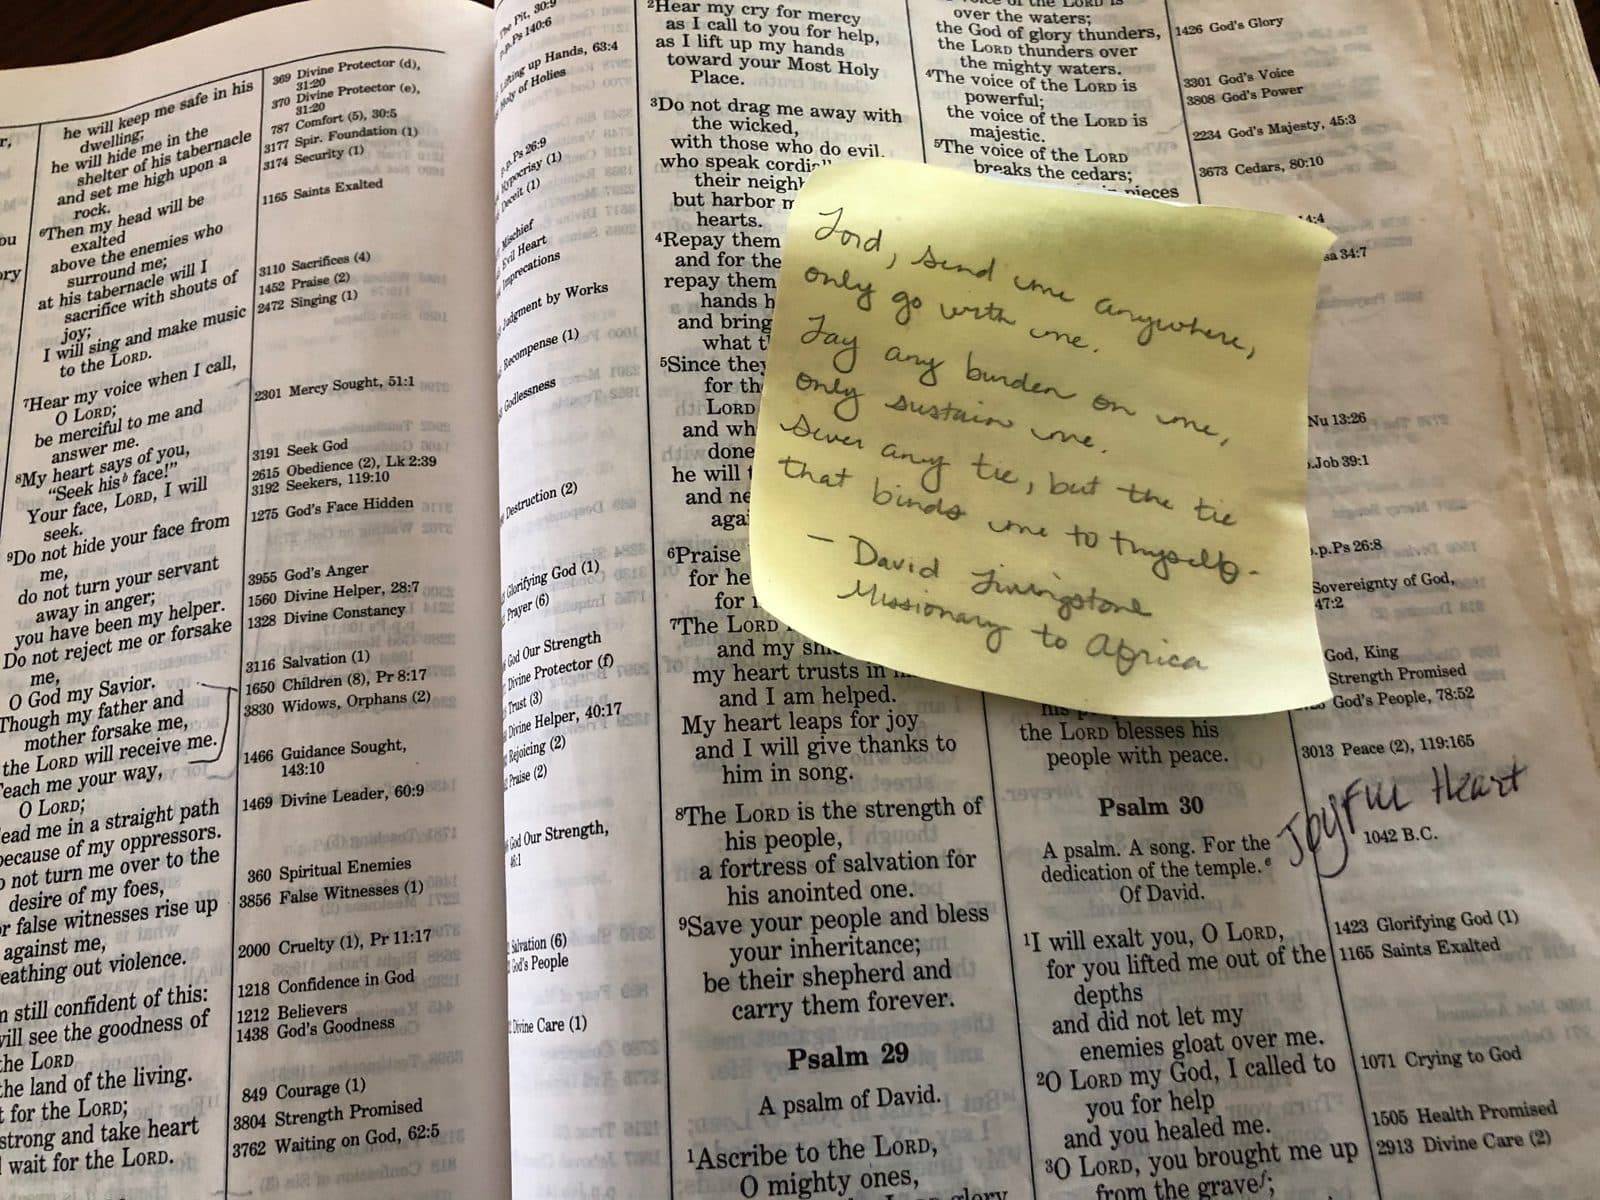 he will keep me safe in his
dwelling;
he will hide me in the
shelter of his tabernacle
and set me high upon a
rock.
6Then my head will be
exalted
above the enemies who
surround me;
at his tabernacle will I
sacrifice with shouts of
joy;
I will sing and make music
to the LORD.
7Hear my voice when I call,
O LORD;
be merciful to me and
answer me.
8My heart says of you,
"Seek hisb face!"
Your face, LORD, I will
seek.
9Do not hide your face from
me,
do not turn your servant
away in anger;
you have been my helper.
Do not reject me or forsake
me,
O God my Savior.
Though my father and
mother forsake me,
the LORD will receive me.
Teach me your way,
O LORD;
lead me in a straight path
because of my oppressors.
not turn me over to the
desire of my foes,
false witnesses rise up
against me,
breathing out violence.
still confident of this:
will see the goodness of
the LORD
the land of the living.
for the LORD;
strong and take heart
wait for the LORD.
369 Divine Protector (d),
31:20
370 Divine Protector (e),
31:20
787 Comfort (5), 30:5
3177 Spir. Foundation (1)
3174 Security (1)
1165 Saints Exalted
3110 Sacrifices (4)
1452 Praise (2)
2472 Singing (1)
2301 Mercy Sought, 51:1
3191 Seek God
2615 Obedience (2), Lk 2:39
3192 Seekers, 119:10
1275 God's Face Hidden
3955 God's Anger
1560 Divine Helper, 28:7
1328 Divine Constancy
3116 Salvation (1)
1650 Children (8), Pr 8:17
3830 Widows, Orphans (2)
1466 Guidance Sought,
143:10
1469 Divine Leader, 60:9
360 Spiritual Enemies
3856 False Witnesses (1)
2000 Cruelty (1), Pr 11:17
1218 Confidence in God
1212 Believers
1438 God's Goodness
849 Courage (1)
3804 Strength Promised
3762 Waiting on God, 62:5
The Pit, 30:9
p.p.Ps 140:6
Lifting up Hands, 63:4
Holy of Holies
p.p.Ps 26:9
Hypocrisy (1)
Deceit (1)
Mischief
Evil Heart
Imprecations
Judgment by Works
Recompense (1)
Godlessness
Destruction (2)
Glorifying God (1)
Prayer (6)
God Our Strength
Divine Protector (f)
Trust (3)
Divine Helper, 40:17
Rejoicing (2)
Praise (2)
God Our Strength,
46:1
Salvation (6)
God's People
Divine Care (1)
2Hear my cry for mercy
as I call to you for help,
as I lift up my hands
toward your Most Holy
Place.
3Do not drag me away with
the wicked,
with those who do evil,
who speak cordially
their
but harbor
hearts.
4Repay them
and for the
repay them
hands
and bring
what
5Since they
for
LORD
and
done
he will
and
6Praise
for
for
7The LORD
and my
my heart trusts in
and I am helped.
My heart leaps for joy
and I will give thanks to
him in song.
8The LORD is the strength of
his people,
a fortress of salvation for
his anointed one.
9Save your people and bless
your inheritance;
be their shepherd and
carry them forever.
Psalm 29
A psalm of David.
1Ascribe to the LORD,
O mighty ones,
glory
over the waters;
the God of glory thunders,
the LORD thunders over
the mighty waters.
4The voice of the LORD is
powerful;
the voice of the LORD is
majestic.
5The voice of the LORD
breaks the cedars;
pieces
Lord, send me anywhere,
only go with me.
Lay any burden on me,
only sustain me.
Sever any tie, but the tie
that binds me to thyself.
- David Livingstone
Missionary to Africa
the LORD blesses his
people with peace.
Psalm 30
A psalm. A song. For the
dedication of the temple.e
Of David.
1I will exalt you, O LORD,
for you lifted me out of the
depths
and did not let my
enemies gloat over me.
2O LORD my God, I called to
you for help
and you healed me.
3O LORD, you brought me up
from the gravef;
1426 God's Glory
3301 God's Voice
3808 God's Power
2234 God's Majesty, 45:3
3673 Cedars, 80:10
Nu 13:26
Job 39:1
p.p.Ps 26:8
Sovereignty of God,
47:2
God, King
Strength Promised
God's People, 78:52
3013 Peace (2), 119:165
Joyful Heart
1042 B.C.
1423 Glorifying God (1)
1165 Saints Exalted
1071 Crying to God
1505 Health Promised
2913 Divine Care (2)